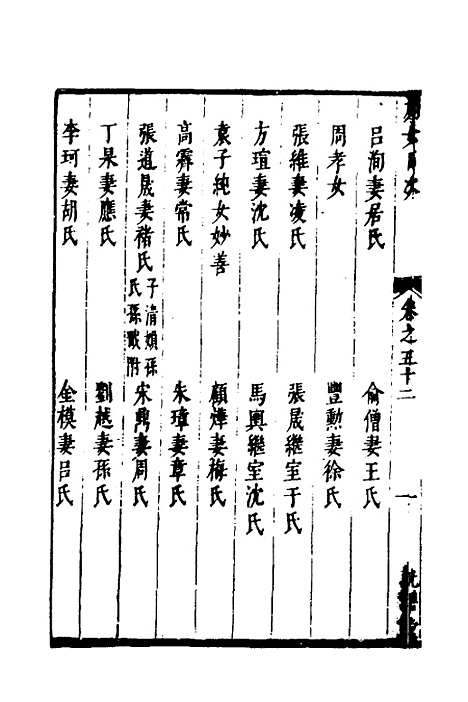 呂洵妻居氏　俞僧妻王氏
周孝女　豐勳妻徐氏
張維妻凌氏　張晟繼室于氏
方瑄妻沈氏　馬輿繼室沈氏
袁子純女妙善　顧燁妻梅氏
高霽妻常氏　朱璋妻章氏
張道晟妻褚氏　子清媍孫氏孫畋附　宋鼎妻周氏
丁杲妻應氏　劉越妻孫氏
李珂妻胡氏　金模妻呂氏
女目次　卷之五十二　一